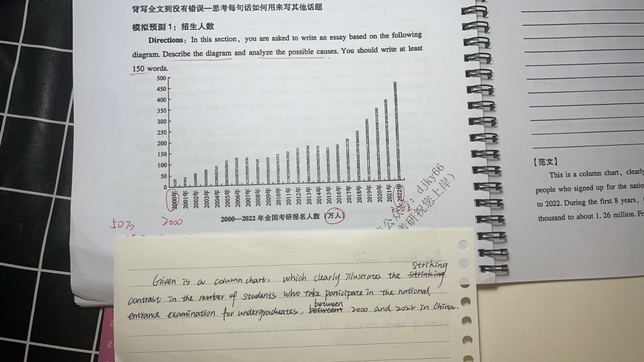 背写全文到没有错误—思考每句话如何用来写其他话题
模拟预测1：招生人数
Directions: In this section, you are asked to write an essay based on the following
diagram. Describe the diagram and analyze the possible causes. You should write at least
150 words.
500
450
400
350
300
250
200
150
100
50
0
2000年 2001年 2002年 2003年 2004年 2005年 2006年 2007年 2008年 2009年 2010年 2011年 2012年 2013年 2014年 2015年 2016年 2017年 2018年 2019年 2020年 2021年 2022年
2000—2022年全国考研报名人数（万人）
50万 2000
djky66
考研祝您上岸）
Given is a column chart, which clearly illustrates the striking
contrast in the number of students who take participate in the national
entrance examination for undergraduates, between 2000 and 2022 in China.
【范文】
This is a column chart, clearly
people who signed up for the natio
to 2022. During the first 8 years,
thousand to about 1. 26 million. Fr